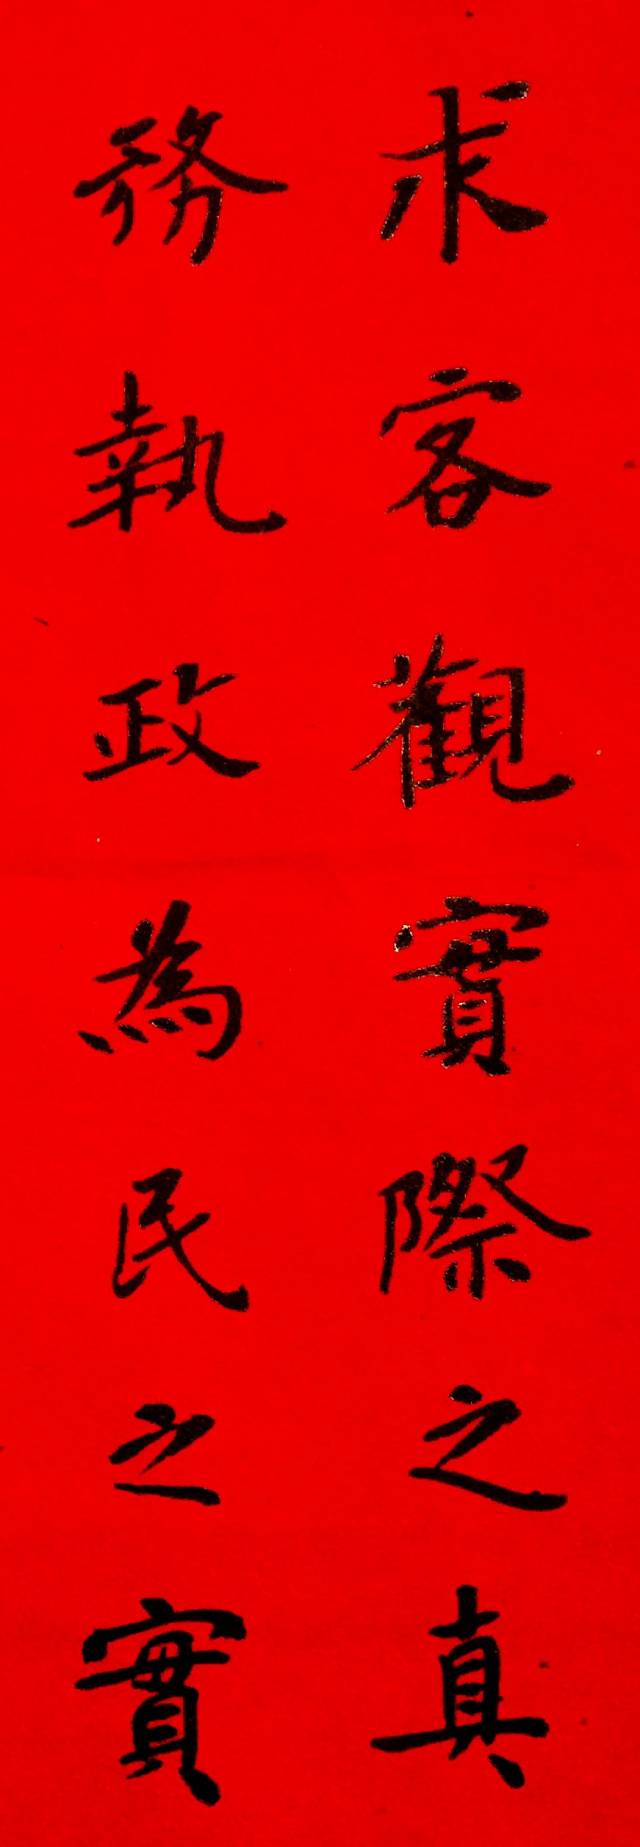 求客觀實際之真
務執政為民之實